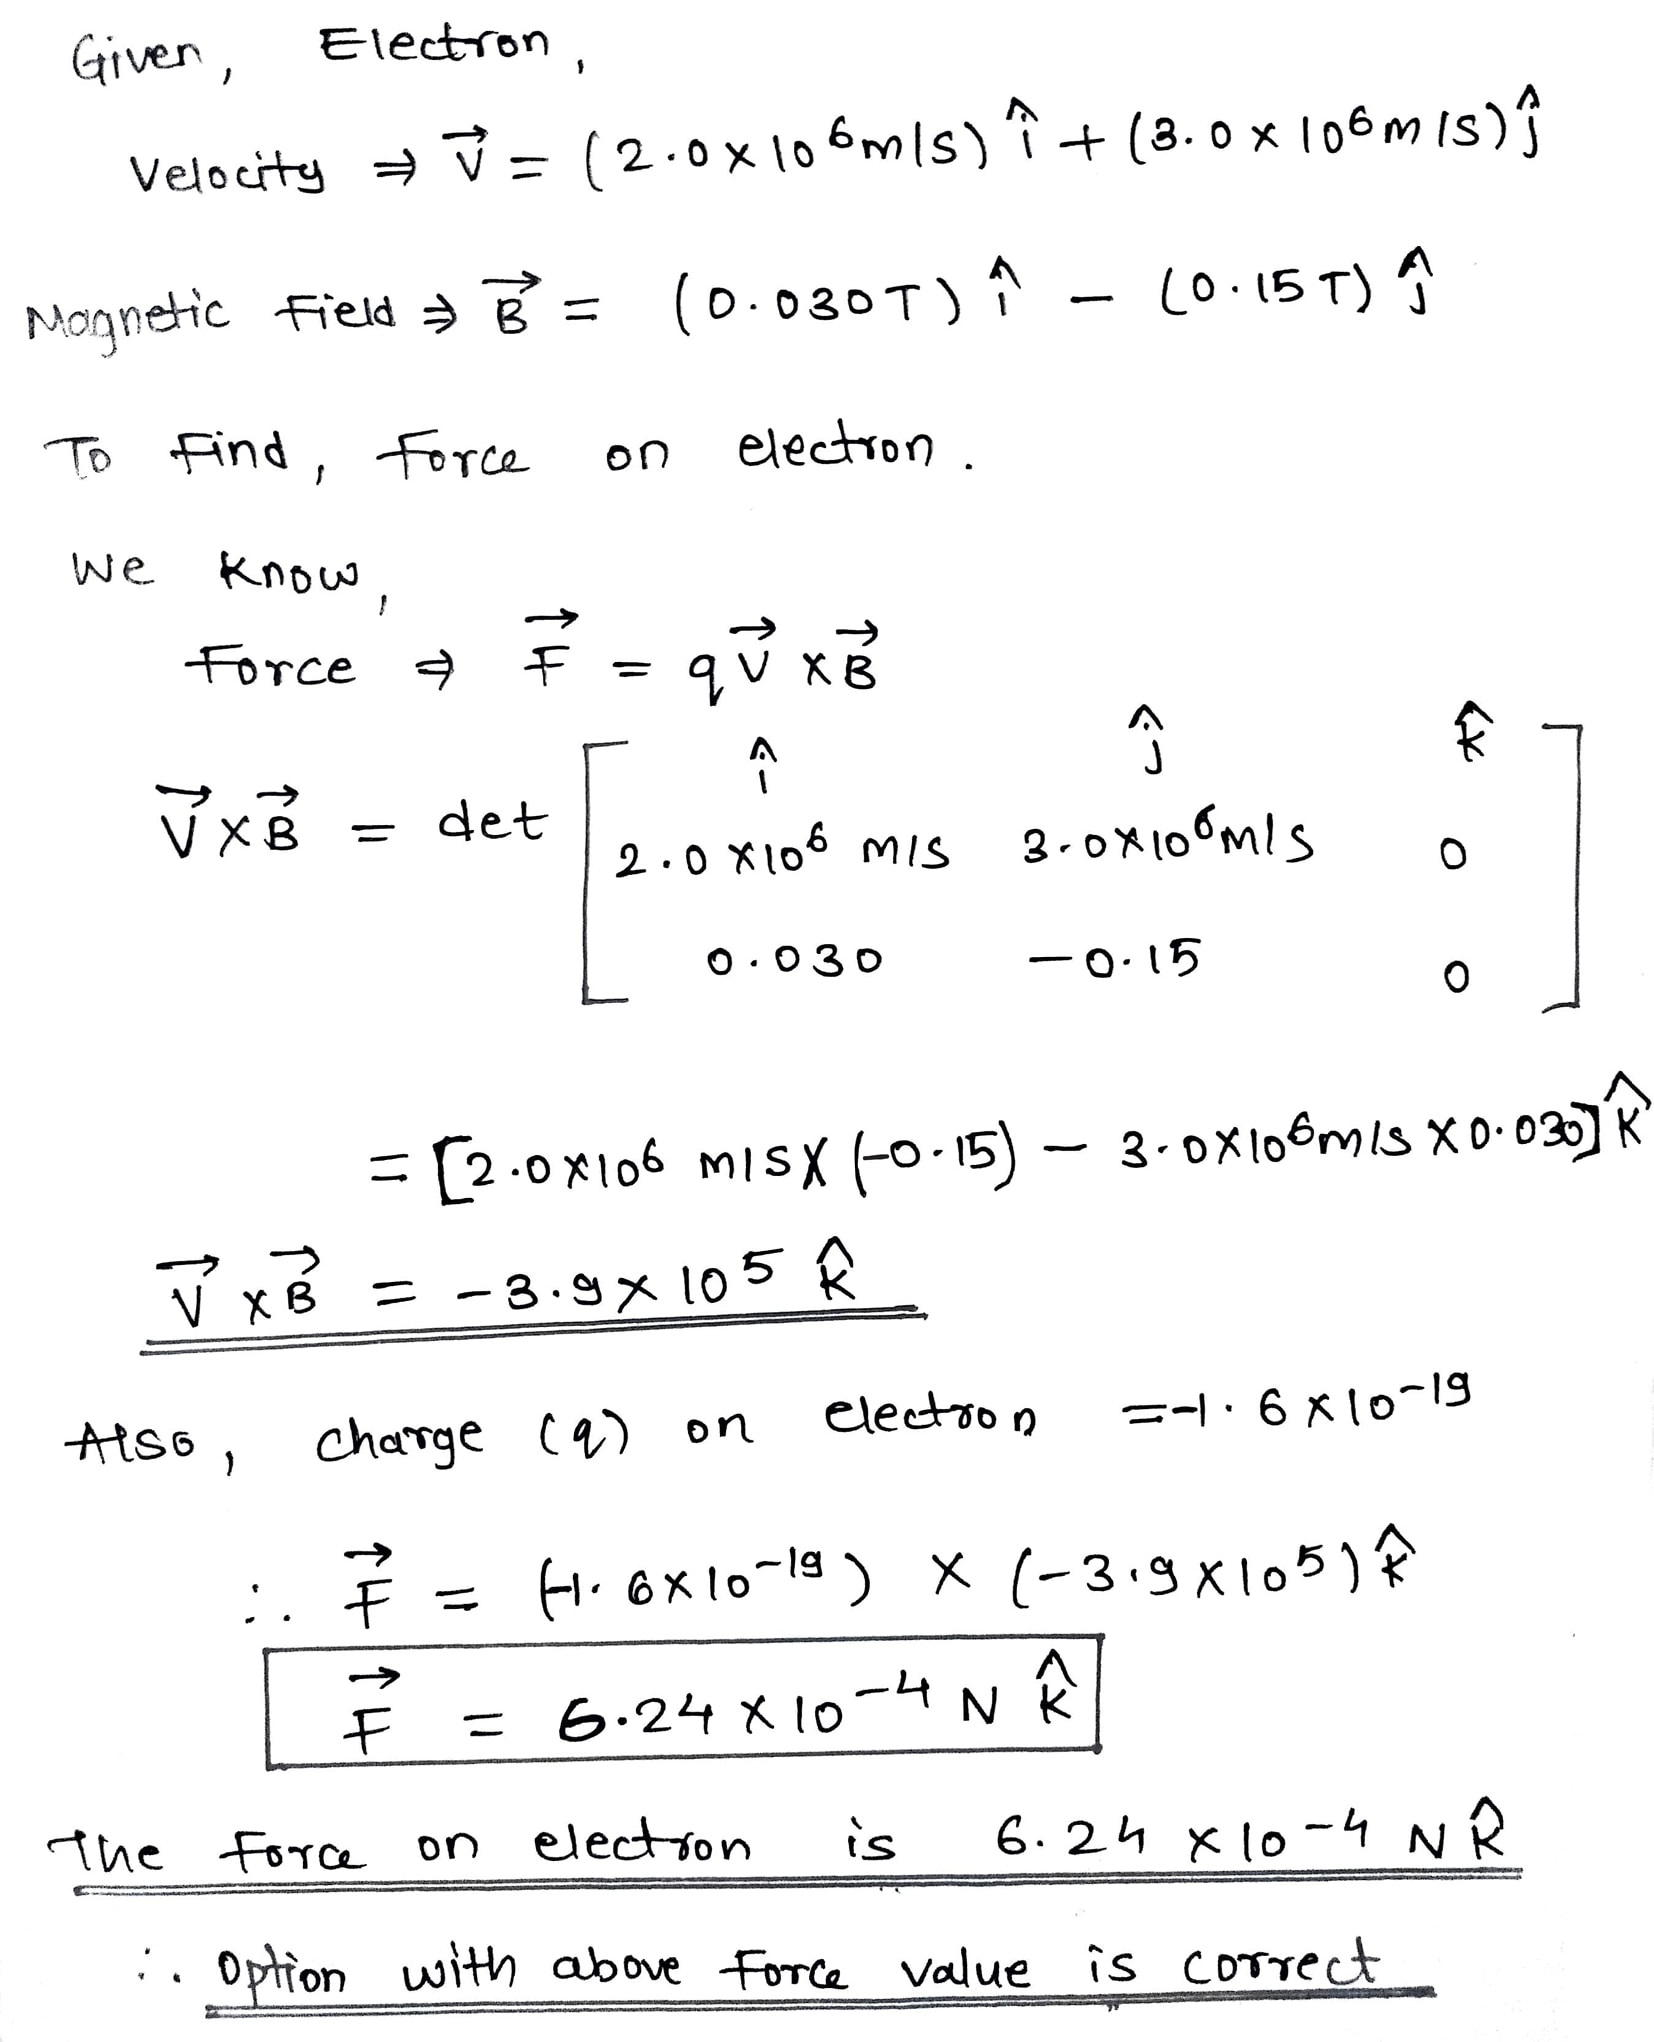 Given, Electron,
Velocity ⇒ V⃗ = (2.0×10⁶m/s) î + (3.0×10⁶m/s) ĵ
Magnetic Field ⇒ B⃗ = (0.030T) î − (0.15T) ĵ
To Find, Force on electron.
We Know,
Force ⇒ F⃗ = qV⃗ × B⃗
î ĵ k̂
V⃗ × B⃗ = det [ 2.0×10⁶ m/s 3.0×10⁶m/s 0 ]
0.030 −0.15 0
= [2.0×10⁶ m/s × (−0.15) − 3.0×10⁶m/s × 0.030] k̂
V⃗ × B⃗ = −3.9×10⁵ k̂
Also, charge (q) on electron = −1.6×10⁻¹⁹
∴ F⃗ = (−1.6×10⁻¹⁹) × (−3.9×10⁵) k̂
F⃗ = 6.24×10⁻⁴ N k̂
The Force on electron is 6.24×10⁻⁴ N k̂
∴ Option with above Force value is correct